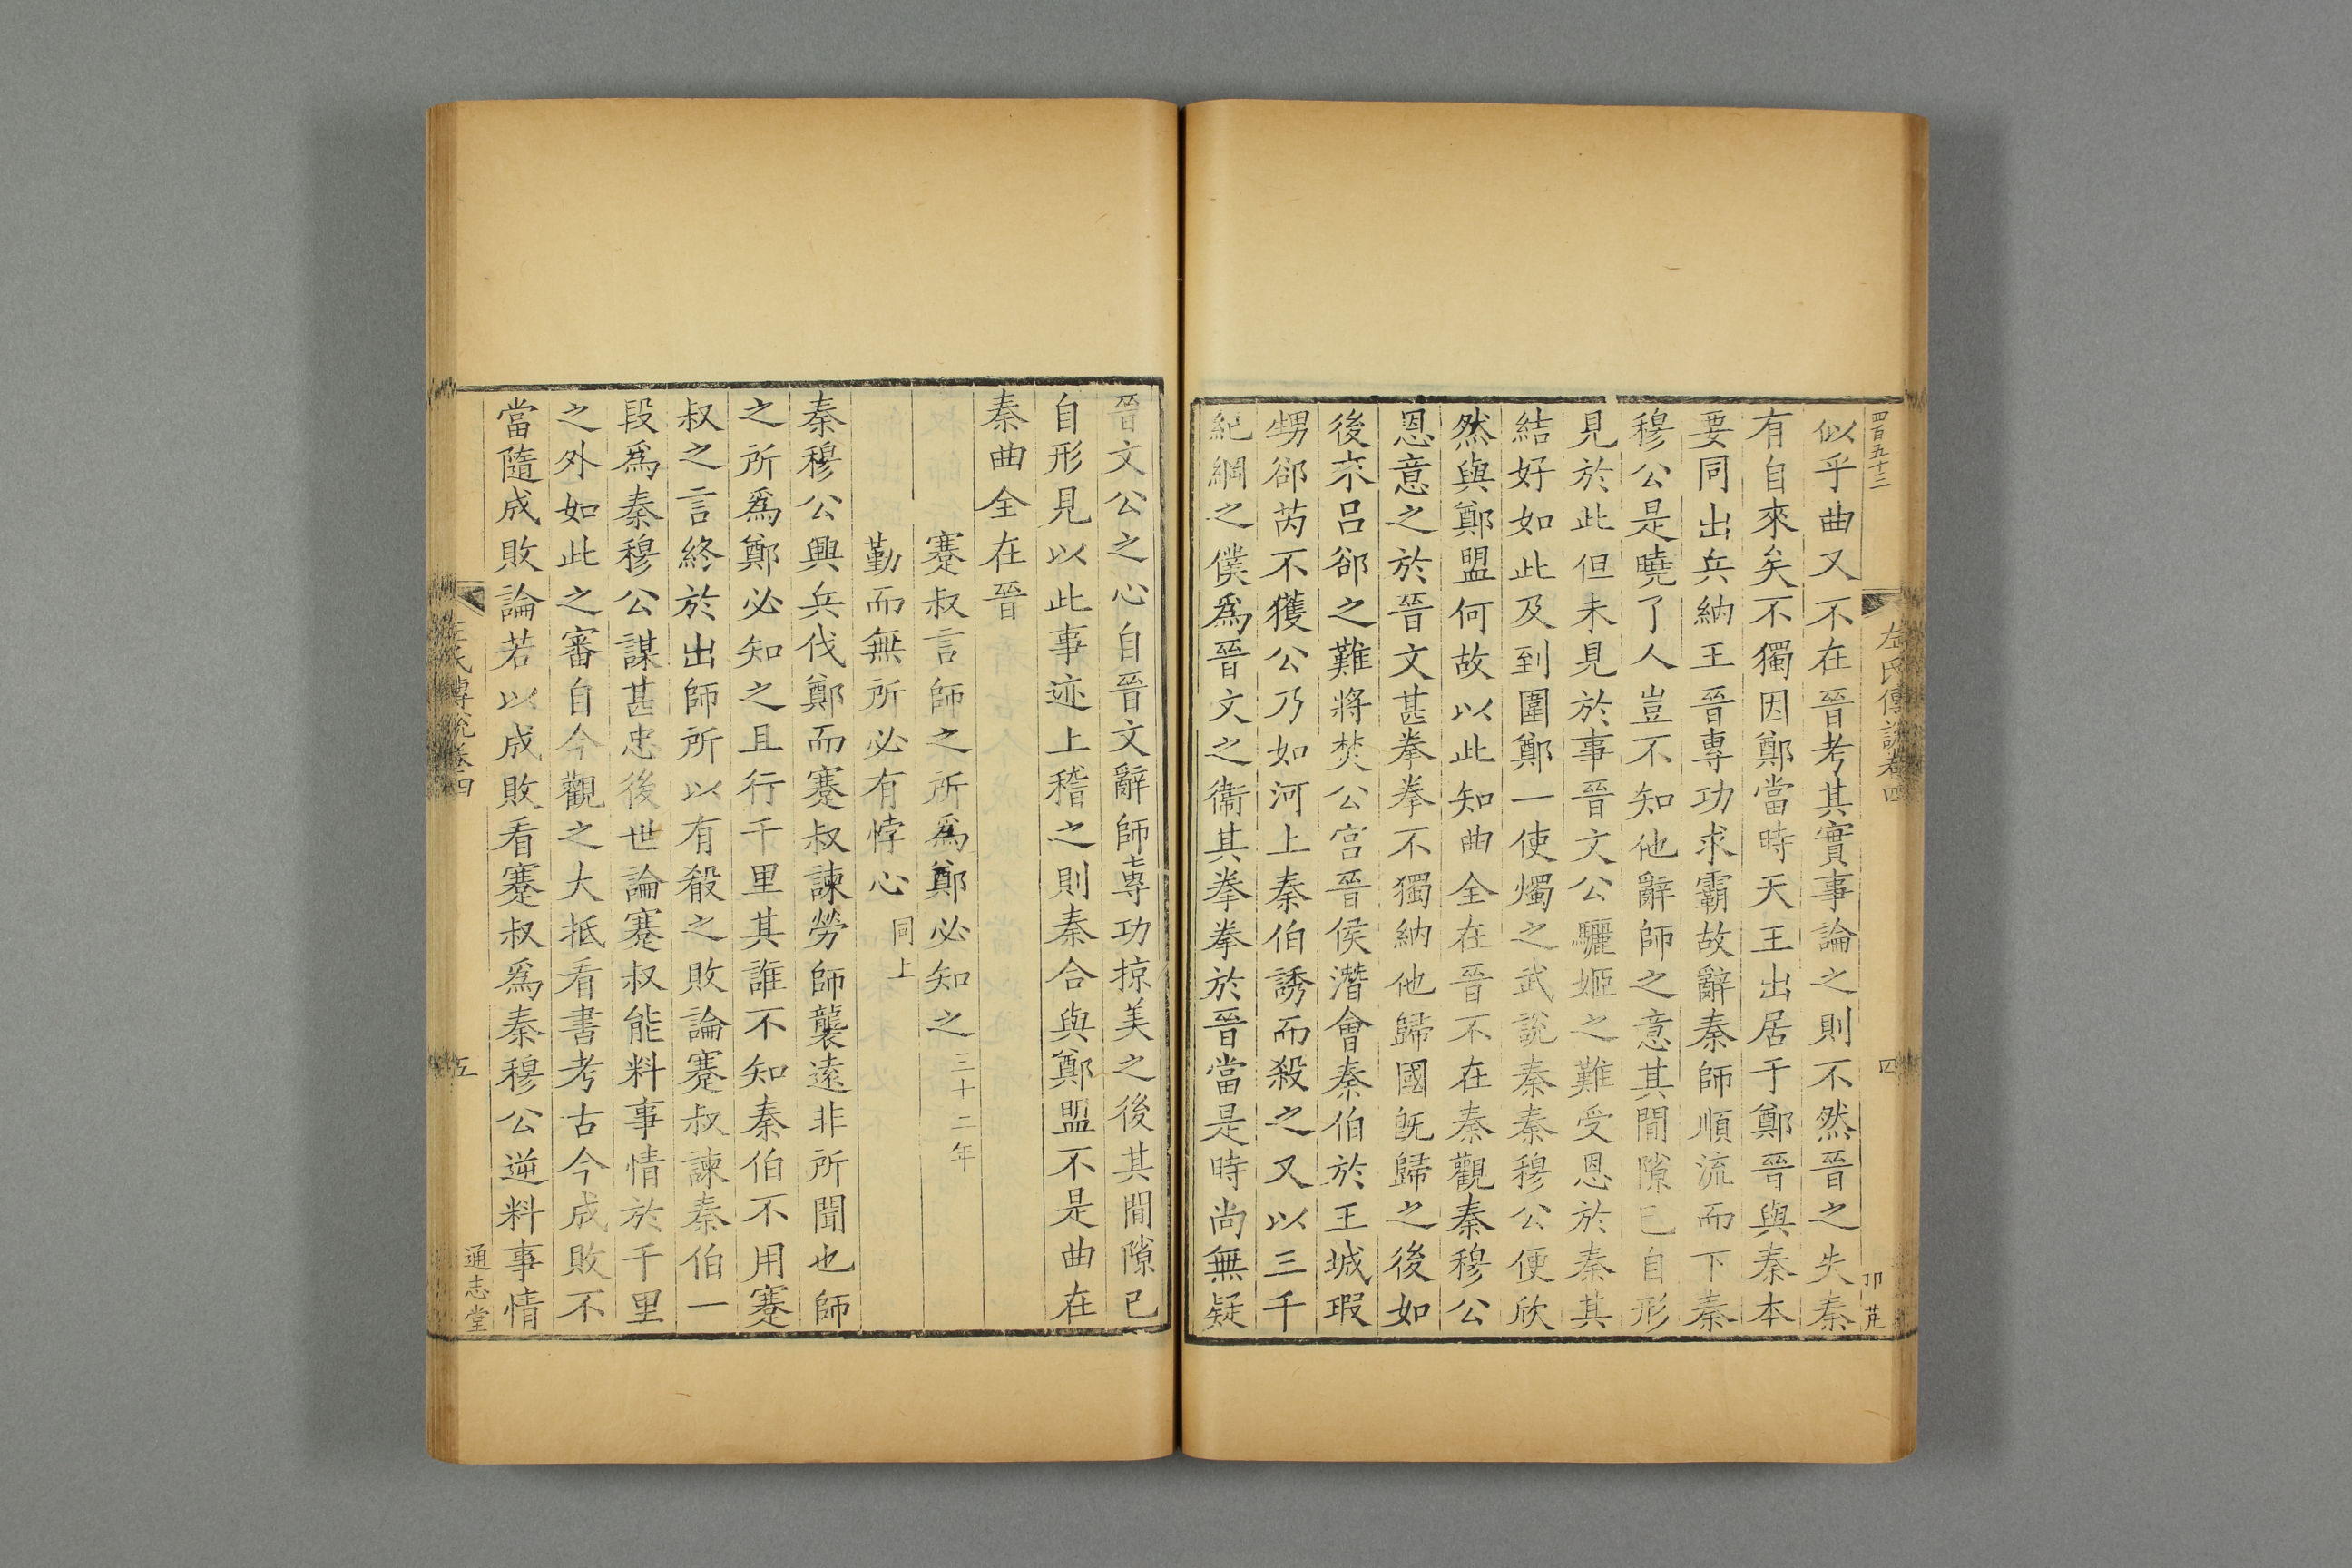 四百五十三
左氏傳說卷四
四
似乎曲又不在晉考其實事論之則不然晉之失秦
有自來矣不獨因鄭當時天王出居于鄭晉與秦本
要同出兵納王晉專功求霸故辭秦師順流而下秦
穆公是曉了人豈不知他辭師之意其間隙已自形
見於此但未見於事晉文公驪姬之難受恩於秦其
結好如此及到圍鄭一使燭之武說秦秦穆公便欣
然與鄭盟何故以此知曲全在晉不在秦觀秦穆公
恩意之於晉文甚拳拳不獨納他歸國旣歸之後如
後來呂郤之難將焚公宮晉侯潛會秦伯於王城瑕
甥郤芮不獲公乃如河上秦伯誘而殺之又以三千
紀綱之僕爲晉文之衞其拳拳於晉當是時尚無疑
晉文公之心自晉文辭師專功掠美之後其間隙已
自形見以此事迹上稽之則秦合與鄭盟不是曲在
秦曲全在晉
蹇叔言師之所爲鄭必知之三十二年
勤而無所必有悖心同上
秦穆公興兵伐鄭而蹇叔諫勞師襲遠非所聞也師
之所爲鄭必知之且行千里其誰不知秦伯不用蹇
叔之言終於出師所以有殽之敗論蹇叔諫秦伯一
段爲秦穆公謀甚忠後世論蹇叔能料事情於千里
之外如此之審自今觀之大抵看書考古今成敗不
當隨成敗論若以成敗看蹇叔爲秦穆公逆料事情
左氏傳說卷四
五
通志堂